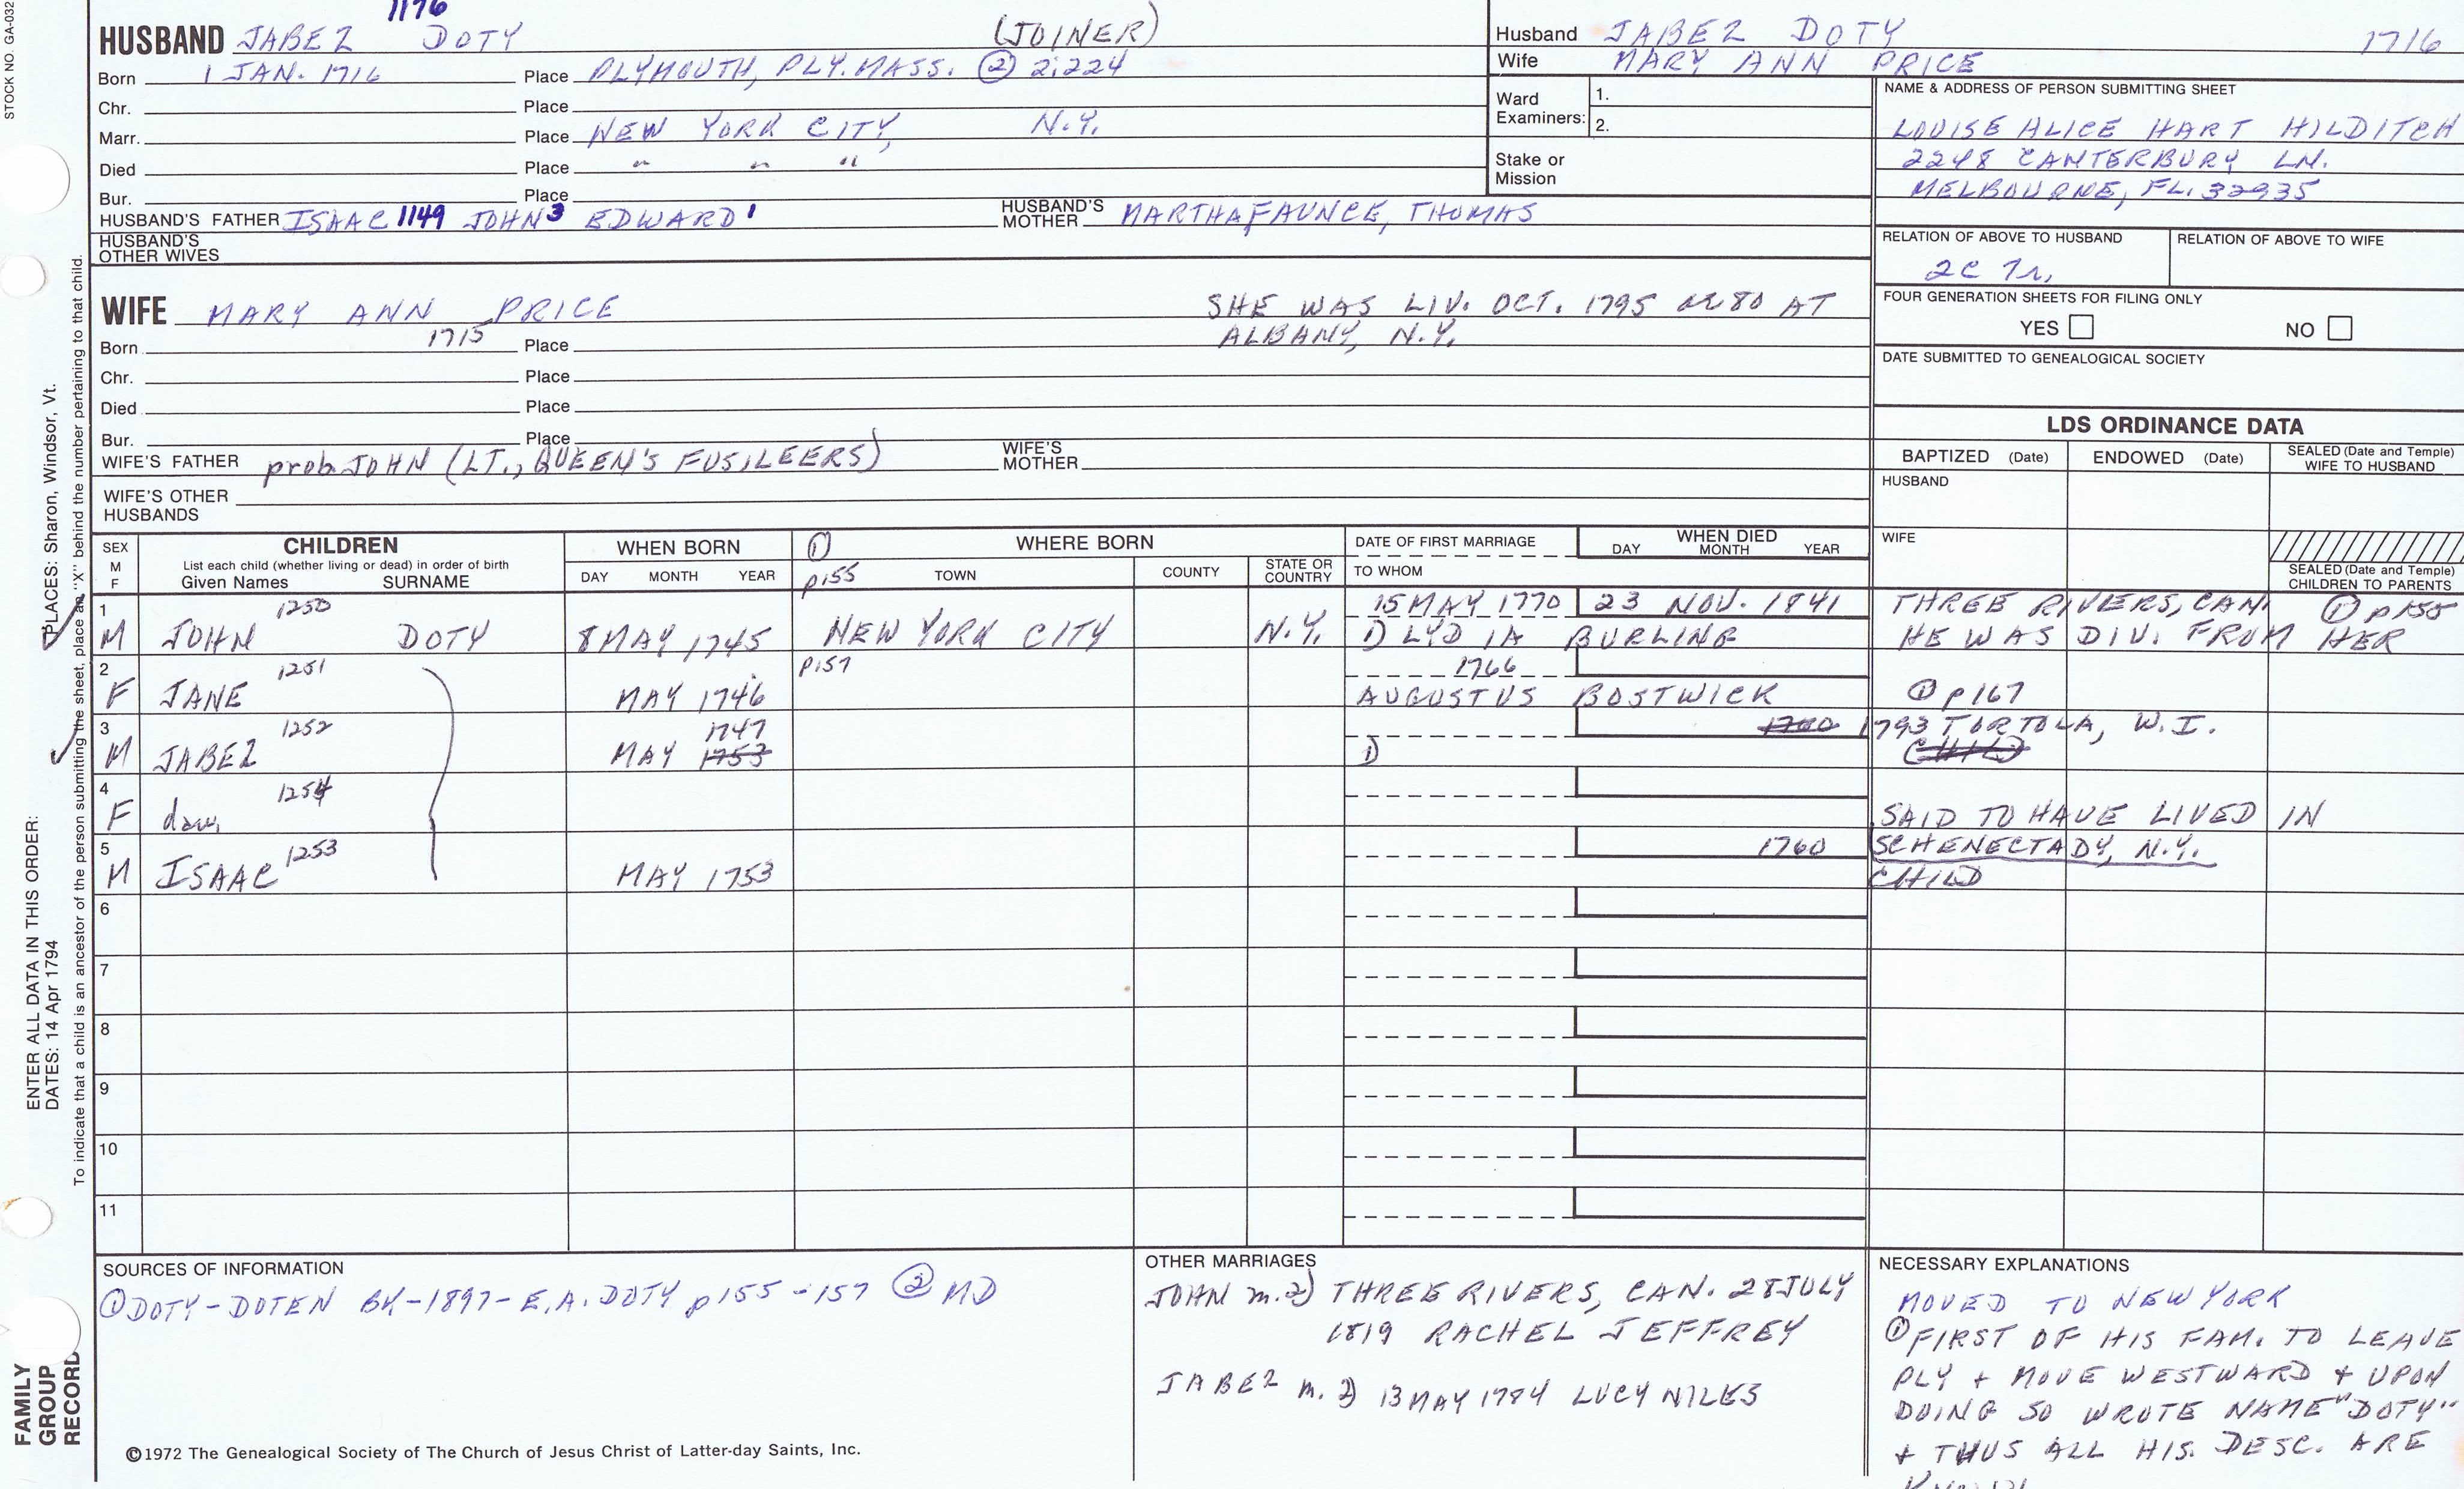 STOCK NO. GA-032
1176
HUSBAND JABEZ DOTY (JOINER)
Born 1 JAN. 1716 Place PLYMOUTH, PLY. MASS. ② 2:224
Chr. Place
Marr. Place NEW YORK CITY, N.Y.
Died Place " " "
Bur. Place
HUSBAND'S FATHER ISAAC 1149 JOHN 3 EDWARD 1 HUSBAND'S MOTHER MARTHA FAUNCE, THOMAS
HUSBAND'S OTHER WIVES
WIFE MARY ANN PRICE SHE WAS LIV. OCT. 1795 ae 80 AT
Born 1715 Place ALBANY, N.Y.
Chr. Place
Died Place
Bur. Place
WIFE'S FATHER prob. JOHN (LT., QUEEN'S FUSILEERS) WIFE'S MOTHER
WIFE'S OTHER HUSBANDS
Husband JABEZ DOTY 1716
Wife MARY ANN PRICE
Ward Examiners: 1.
2.
Stake or Mission
NAME & ADDRESS OF PERSON SUBMITTING SHEET
LOUISE ALICE HART HILDITCH
2248 CANTERBURY LN.
MELBOURNE, FL. 32935
RELATION OF ABOVE TO HUSBAND RELATION OF ABOVE TO WIFE
2C 7r.
FOUR GENERATION SHEETS FOR FILING ONLY
YES NO
DATE SUBMITTED TO GENEALOGICAL SOCIETY
LDS ORDINANCE DATA
BAPTIZED (Date) ENDOWED (Date) SEALED (Date and Temple) WIFE TO HUSBAND
HUSBAND
WIFE
SEALED (Date and Temple) CHILDREN TO PARENTS
SEX M F
CHILDREN
List each child (whether living or dead) in order of birth
Given Names SURNAME
WHEN BORN
DAY MONTH YEAR
① p155
WHERE BORN
TOWN COUNTY STATE OR COUNTRY
DATE OF FIRST MARRIAGE
TO WHOM
WHEN DIED
DAY MONTH YEAR
1 1250 15 MAY 1770 23 NOV. 1841 THREE RIVERS, CAN. ① p155
M JOHN DOTY 8 MAY 1745 NEW YORK CITY N.Y. 1) LYDIA BURLING HE WAS DIV. FROM HER
2 1251 p157 1766
F JANE MAY 1746 AUGUSTUS BOSTWICK ① p167
3 1252 1747 1760 1793 TORTOLA, W.I.
M JABEZ MAY 1753 1) CHILD
4 1254
F dau. SAID TO HAVE LIVED IN
5 1253 1760 SCHENECTADY, N.Y.
M ISAAC MAY 1753 CHILD
6
7
8
9
10
11
SOURCES OF INFORMATION
① DOTY-DOTEN BK-1897-E.A. DOTY p155-157 ② MD
©1972 The Genealogical Society of The Church of Jesus Christ of Latter-day Saints, Inc.
OTHER MARRIAGES
JOHN m. 2) THREE RIVERS, CAN. 28 JULY
1819 RACHEL JEFFREY
JABEZ m. 2) 13 MAY 1784 LUCY NILES
NECESSARY EXPLANATIONS
MOVED TO NEW YORK
① FIRST OF HIS FAM. TO LEAVE
PLY + MOVE WESTWARD + UPON
DOING SO WROTE NAME "DOTY"
+ THUS ALL HIS DESC. ARE
FAMILY GROUP RECORD
ENTER ALL DATA IN THIS ORDER:
DATES: 14 Apr 1794 PLACES: Sharon, Windsor, Vt.
To indicate that a child is an ancestor of the person submitting the sheet, place an "X" behind the number pertaining to that child.